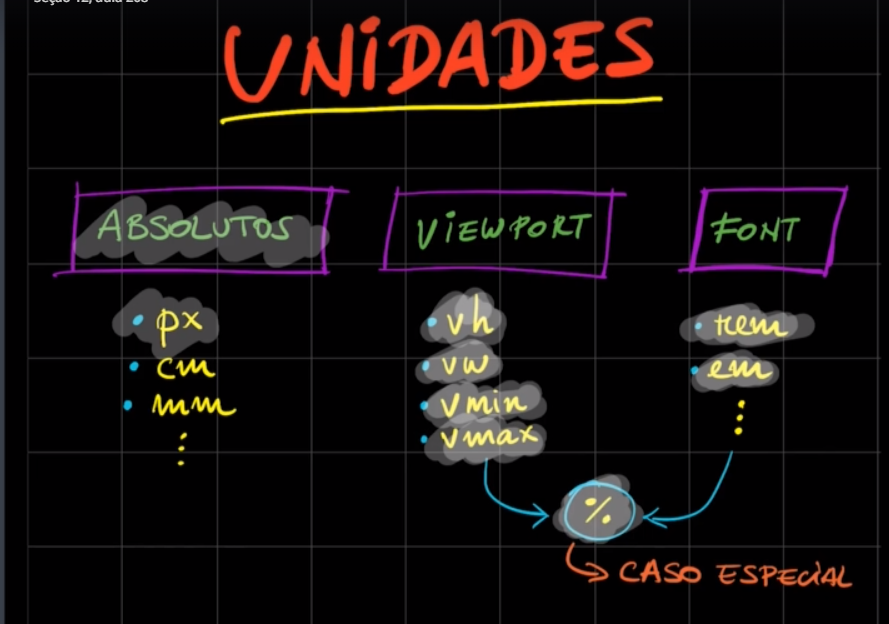 UNIDADES
ABSOLUTOS
px
cm
mm
VIEWPORT
vh
vw
vmin
vmax
FONT
rem
em
%
CASO ESPECIAL